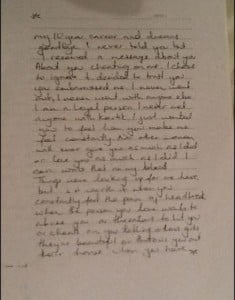 my 10 year career and dreams
goodbye. I never told you but
I received a message about you
About you cheating on me. I chose
to ignore it decided to trust you
you embarrassed me. I never went
out, I never went with anyone else
I am a loyal person. I never met
anyone with Kartik I just wanted
you to feel how you make me
feel constantly. No other woman
will ever give you as much as I did
or love you as much as I did. I
can write that in my blood
Things were looking up for me here,
but is it worth it when you
constantly feel the pain of heartbreak
when the person you love wants to
abuse you or threatens to hit you
or cheats on you telling other girls
they're beautiful or throws you out
their house when you have